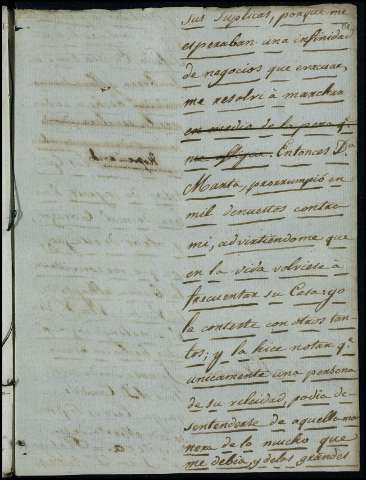 sus suplicas, porque me
esperaban una infinidad
de negocios que evacuar,
me resolvi à marchar
en medio de la pena q.e
me aflige. Entonces D.a
Marta, prorrumpió en
mil denuestos contra
mi, advirtiendome que
en la vida volviese à
frecuentar su Casa: yo
la contesté con otros tan-
tos; y la hice notar q.e
unicamente una persona
de su veleidad, podia de-
sentenderse de aquella ma-
nera de lo mucho que
me debia, y de los grandes